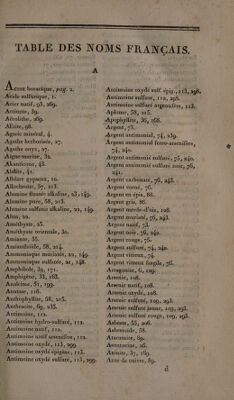 TABLE DES NOMS FRANÇAIS.
A
Acide boracique, pag. 2.
Acide sulfurique, 1.
Acier natif, 93, 269.
Actinote, 39.
Aérolithe, 269.
Allaite, 98.
Agate minéral, 4.
Agathe herborisée, 27.
Agathe onyx, 27.
Aigue-marine, 32.
Akanticone, 43.
Albâtre gypseux, 10.
Allochroïte, 57, 213.
Alumine fluatée alkaline, 23, 149.
Alumine pure, 58, 213.
Alumine sulfatée alkaline, 22, 149.
Alun, 22.
Améthyste, 25.
Améthyste orientale, 30.
Amiante, 55.
Amianthoïde, 58, 214.
Ammoniaque muriatée, 22, 149.
Ammoniaque sulfatée, 22, 148.
Amphibole, 39, 171.
Amphigène, 35, 163.
Analcime, 51, 199.
Anatase, 116.
Andalousite, 58, 215.
Anthracite, 69, 235.
Antimoine, 112.
Antimoine hydro-sulfuré, 112.
Antimoine natif, 112.
Antimoine oxydé, 113, 299.
Antimoine oxydé épigène, 113.
Antimoine oxydé sulfuré, 113, 299.
Antimoine oxydé sulf. épig., 113, 298.
Antimoine sulfuré, 112, 298.
Antimoine sulfuré argentifère, 113.
Aplome, 58, 215.
Apophyllite, 36, 268.
Argent, 73.
Argent antimonial, 74, 239.
Argent antimonial ferro-arsenifère, 74, 240.
Argent antimonié sulfuré, 75, 240.
Argent antimonié sulfuré noir, 76, 241.
Argent carbonaté, 76, 243.
Argent corné, 76.
Argent en épis, 88.
Argent gris, 86.
Argent merde-d'oie, 106.
Argent muriaté, 76, 243.
Argent natif, 73.
Argent noir, 76, 242.
Argent rouge, 75.
Argent sulfuré, 74, 240.
Argent vitreux, 74.
Argent vitreux fragile, 76.
Arragonite, 6, 129.
Arsenic, 108.
Arsenic natif, 108.
Arsenic oxydé, 108.
Arsenic sulfuré, 109, 293.
Arsenic sulfuré jaune, 109, 293.
Arsenic sulfuré rouge, 109, 293.
Asbeste, 55, 206.
Astéroïde, 58.
Atacamite, 89.
Aventurine, 26.
Axinite, 37, 169.
Azur de cuivre, 89.
d